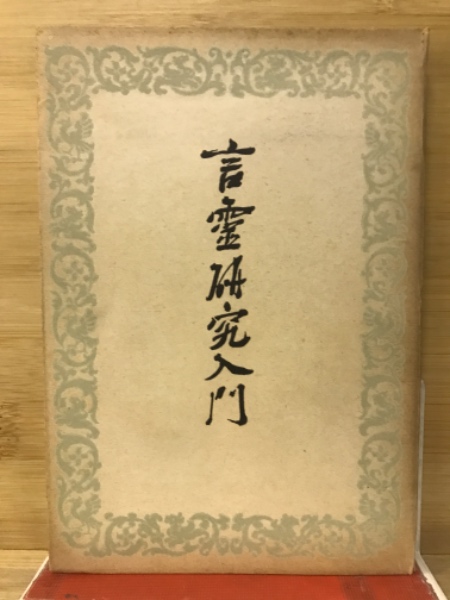 言霊研究入門